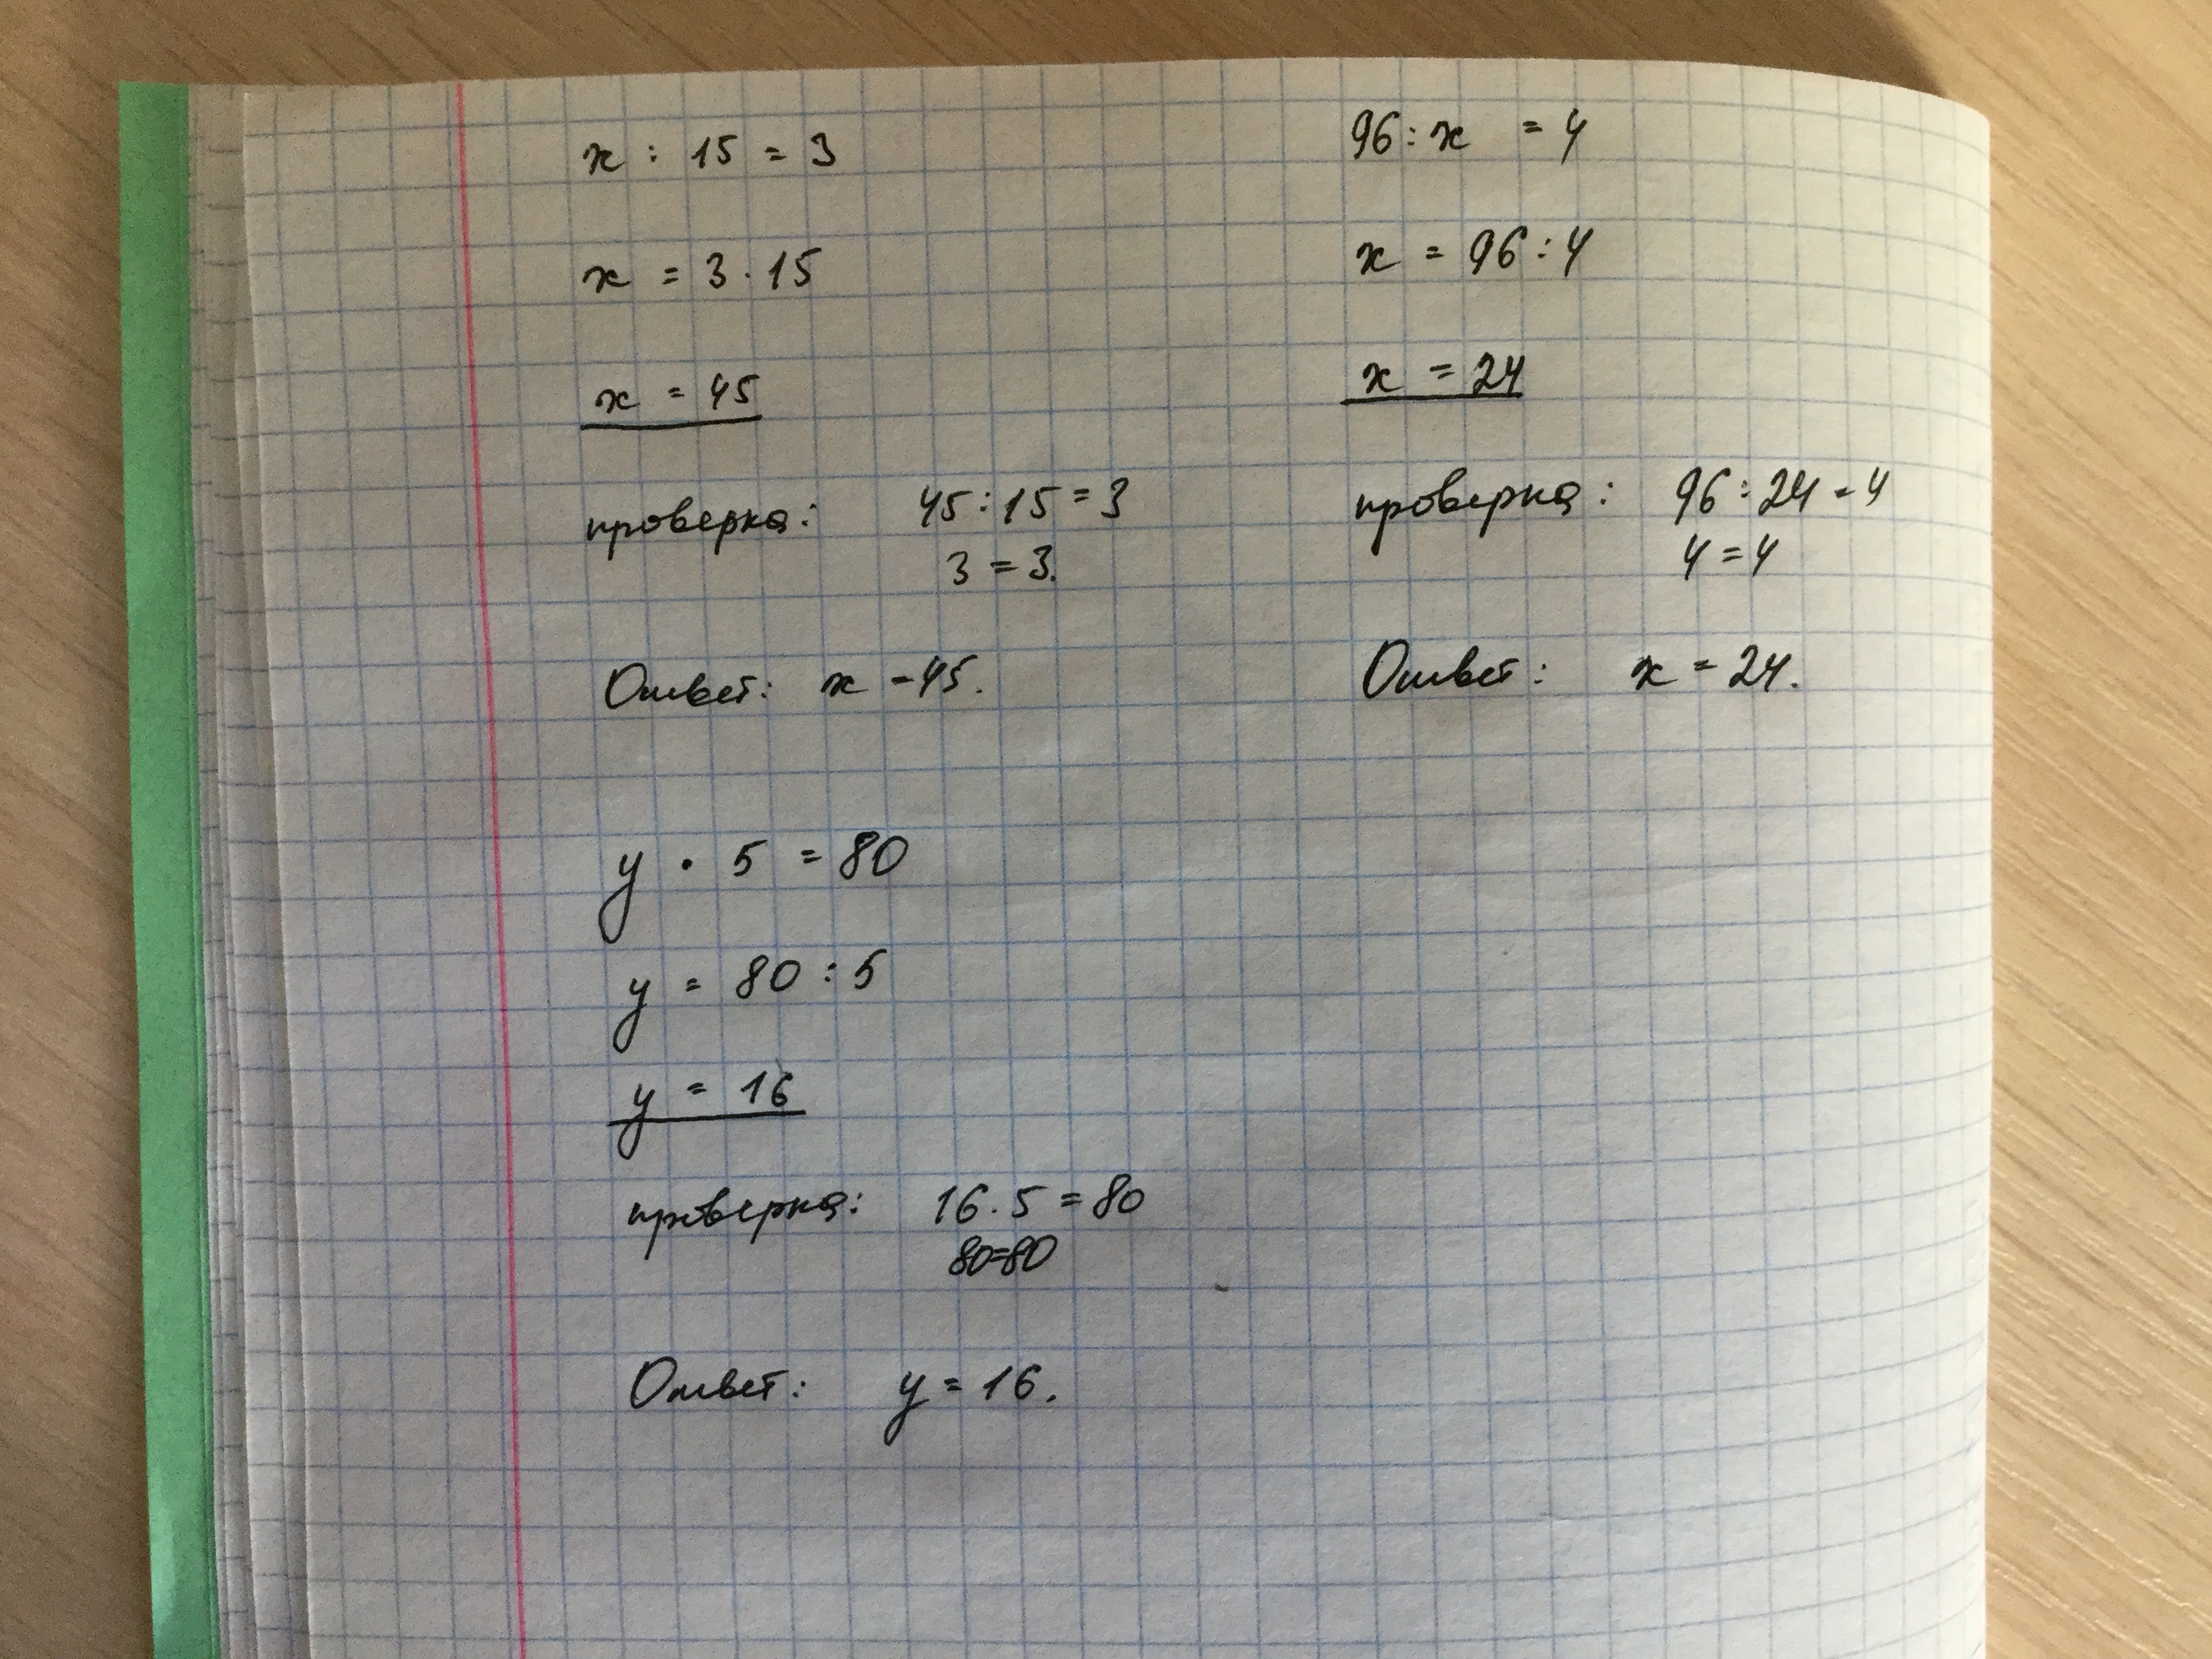 x : 15 = 3
x = 3 · 15
x = 45
проверка: 45 : 15 = 3
3 = 3.
Ответ: x = 45.
96 : x = 4
x = 96 : 4
x = 24
проверка: 96 : 24 = 4
4 = 4
Ответ: x = 24.
y · 5 = 80
y = 80 : 5
y = 16
проверка: 16 · 5 = 80
80=80
Ответ: y = 16.